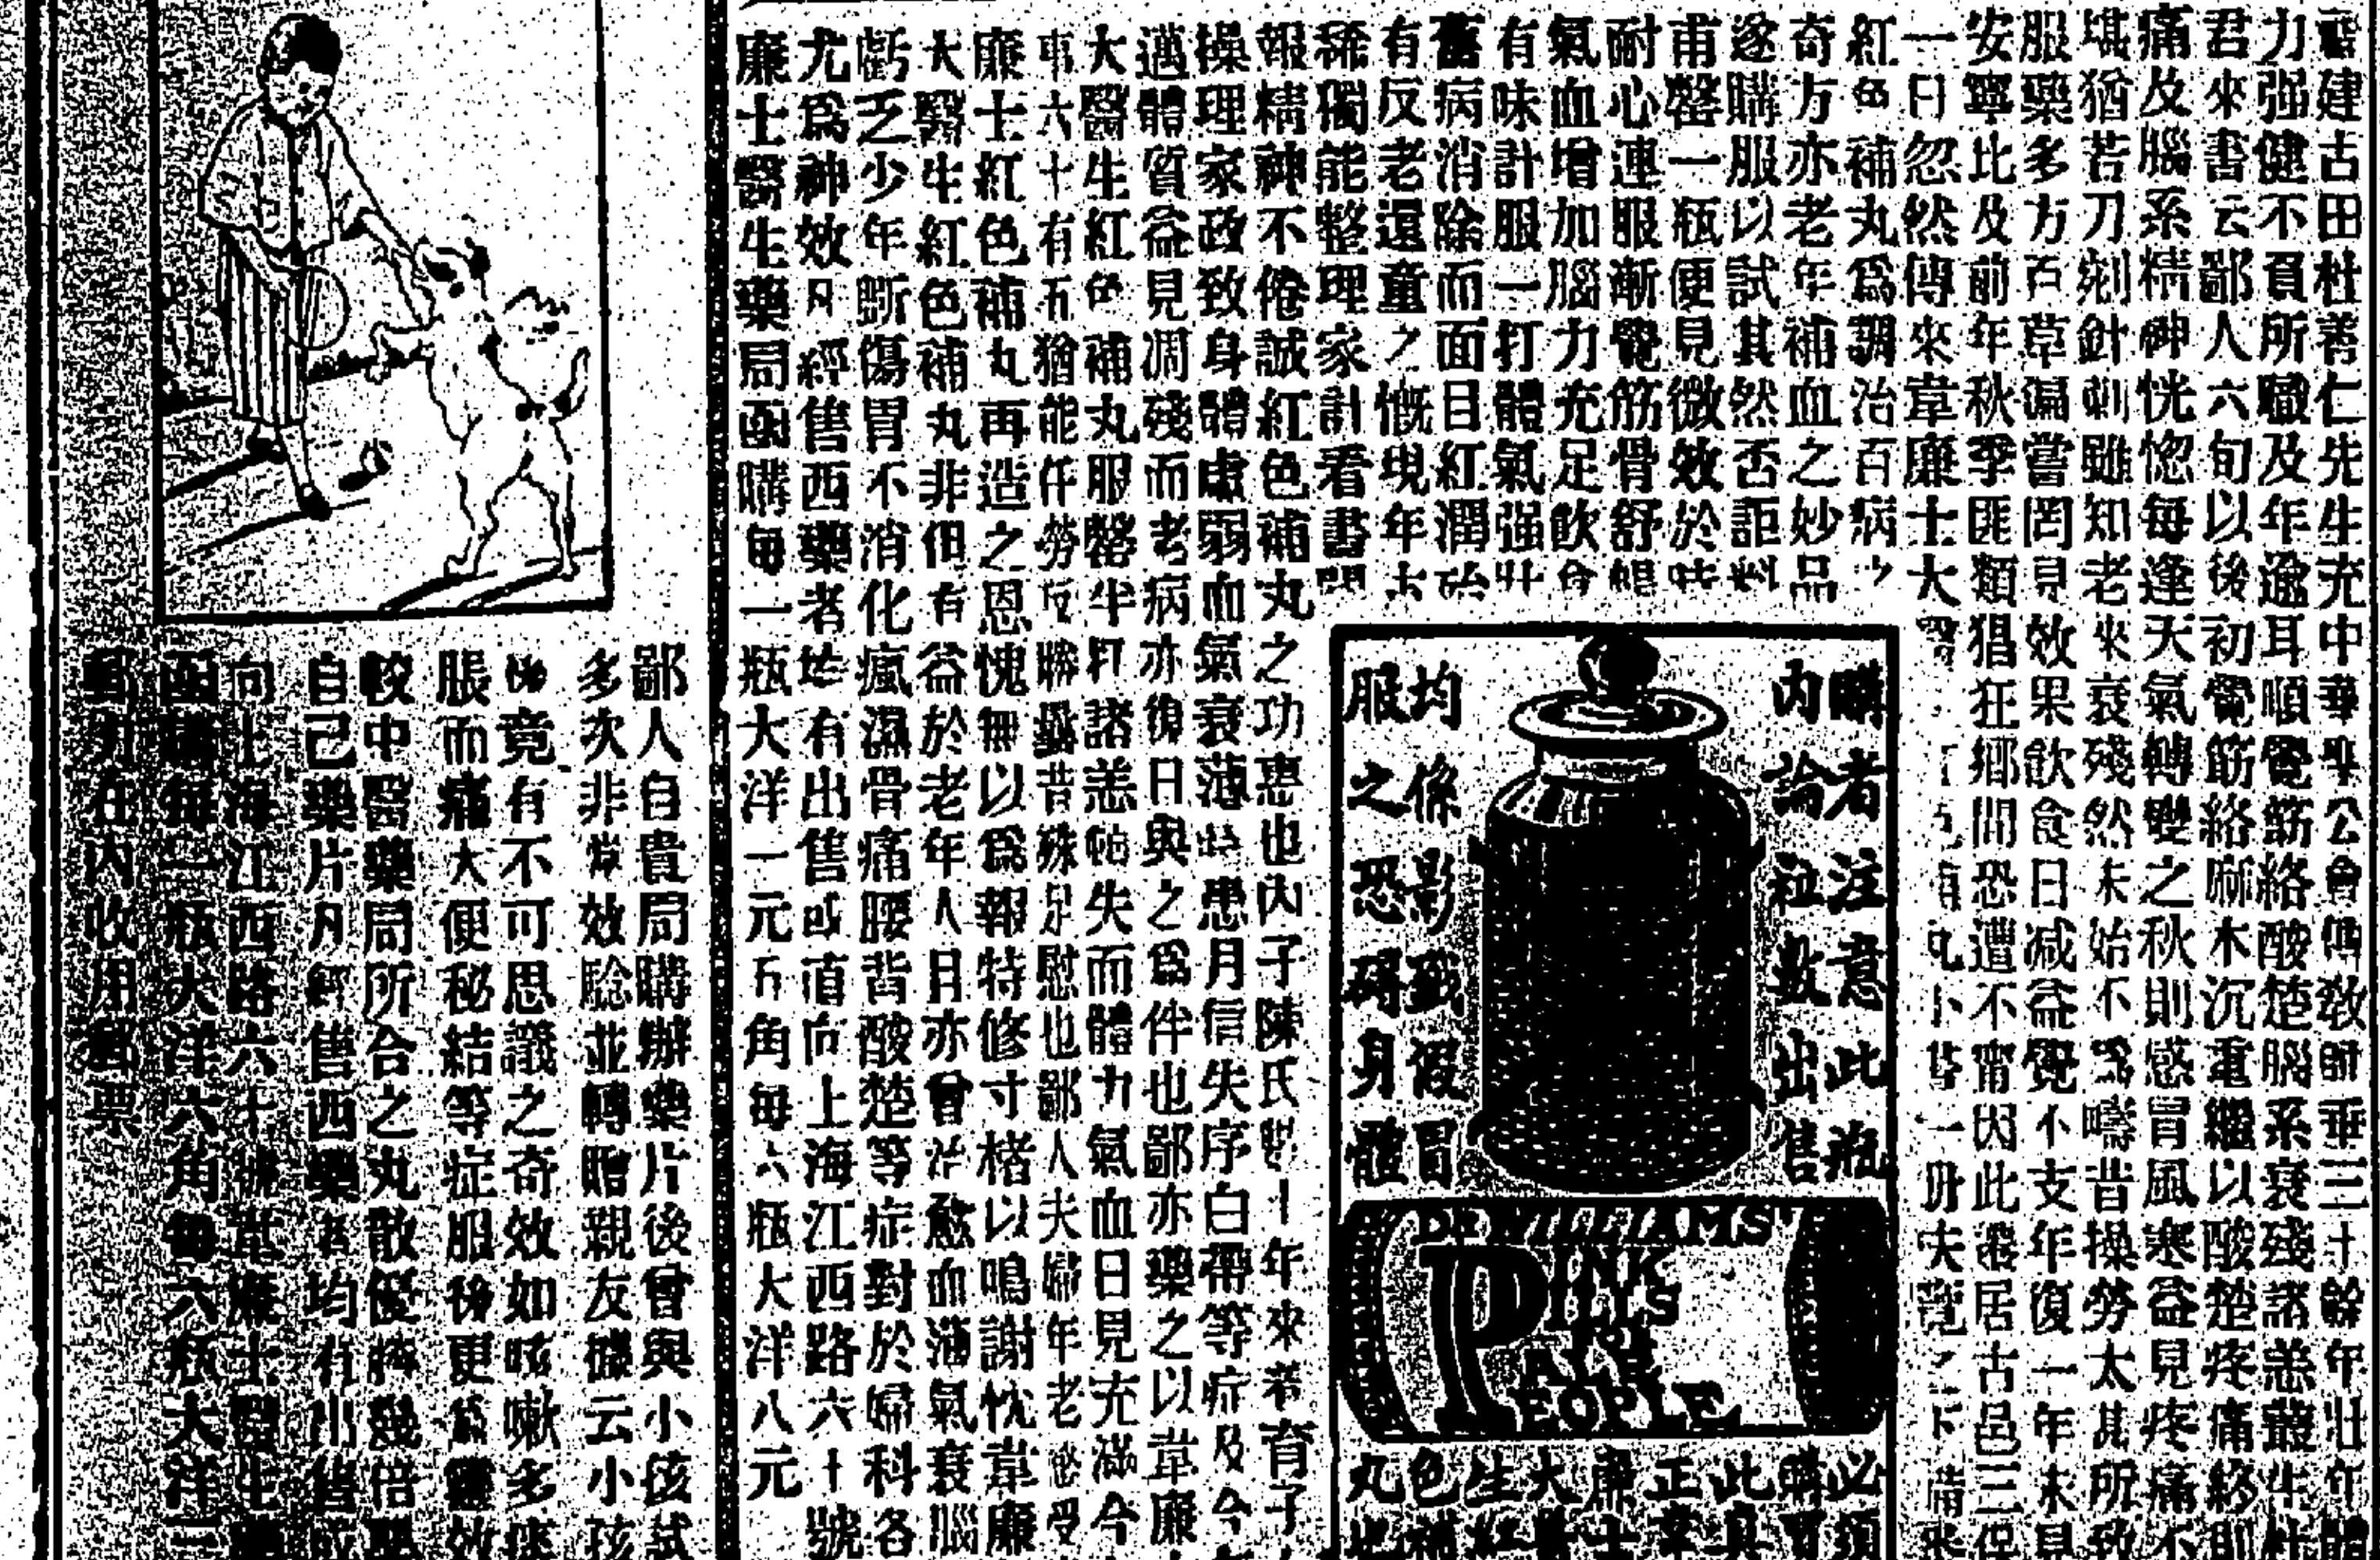 福建古田杜善仁先生充中華聖公會傳教師垂三十餘年壯年體
力强健不負所職及年逾耳順覺筋絡酸楚腦系衰殘諸恙叢生杜
君來書云鄙人六旬以後初覺筋絡麻木沉重繼以酸楚疼痛終則
痛及腦系精神恍惚每逢天氣轉變之秋則感冒風寒益見疼痛不
堪猶若刀剜針刺雖知老來衰殘然未始不爲疇昔操勞太甚所致
服藥多方百草徧嘗罔見效果飲食日減益覺不支年復一年未見
安寧比及前年秋季匪類猖狂鄉間恐遭不甯因此遷居古邑三保
一日忽然傳來韋廉士大醫
紅色補丸爲調治百病之
奇方亦老年補血之妙品
遂購服以試其然否詎料
甫罄一瓶便見微效於時
耐心連服漸覺筋骨舒暢
氣血增加腦力充足飲食
有味計服一打體氣强壯
舊病消除而面目紅潤殆
有反老還童之慨現年古
稀獨能整理家計看書閱
報精神不倦誠紅色補丸之功惠也內子陳氏 十年來希育子
操理家政致身體虛弱血氣衰薄時患月信失序白帶等症及今年
邁體質益見凋殘而老病亦復日與之爲伴也鄙亦藥之以韋廉士
大醫生紅色補丸服罄半打諸恙帖失而體力氣血日見充滿今
事六十有五猶能任勞反勝疇昔殊足慰也鄙人夫婦年老 受
廉士紅色補丸再造之恩愧無以爲報特修寸楮以鳴謝忱韋廉
大醫生紅色補丸非但有益於老年人且亦曾治愈血薄氣衰腦
虧乏少年斲傷胃不消化瘋濕骨痛腰背酸楚等症對於婦科各
尤爲神效凡經售西藥者均有出售或直向上海江西路六十號
廉士醫生藥局函購每一瓶大洋一元五角每六瓶大洋八元
購者注意此瓶
內論粒數出售
均係影戤假冒
服之恐碍身體
DR WILLIAMS'
PINK
PILLS
FOR
PALE
PEOPLE
必須
購買
此眞
正韋
廉士
大醫
生紅
色補
丸也
鄙人自貴局購辦藥片後曾與小孩試
多次非常效驗並轉贈親友據云小孩
後竟有不可思議之奇效如咳嗽多痰
脹而痛大便秘結等症服後更爲靈效
較中醫藥局所合之丸散優勝幾倍
自己藥片凡經售西藥者均有出售或
向上海江西路六十號韋廉士醫生藥
函購每一瓶大洋六角每六瓶大洋三
郵力在內收用郵票